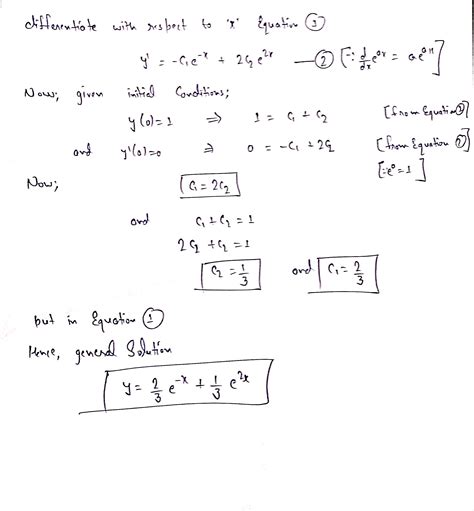 differentiate with respect to 'x' Equation ①
y' = -C₁e⁻ˣ + 2C₂e²ˣ — ② [∵ d/dx eᵃˣ = aeᵃˣ]
Now; given initial Conditions;
y(0)=1 ⇒ 1 = C₁ + C₂ [from Equation ①]
and y'(0)=0 ⇒ 0 = -C₁ + 2C₂ [from Equation ②]
[∵ e⁰ = 1]
Now; C₁ = 2C₂
and C₁ + C₂ = 1
2C₂ + C₂ = 1
C₂ = 1/3 and C₁ = 2/3
put in Equation ①
Hence, general Solution
y = 2/3 e⁻ˣ + 1/3 e²ˣ